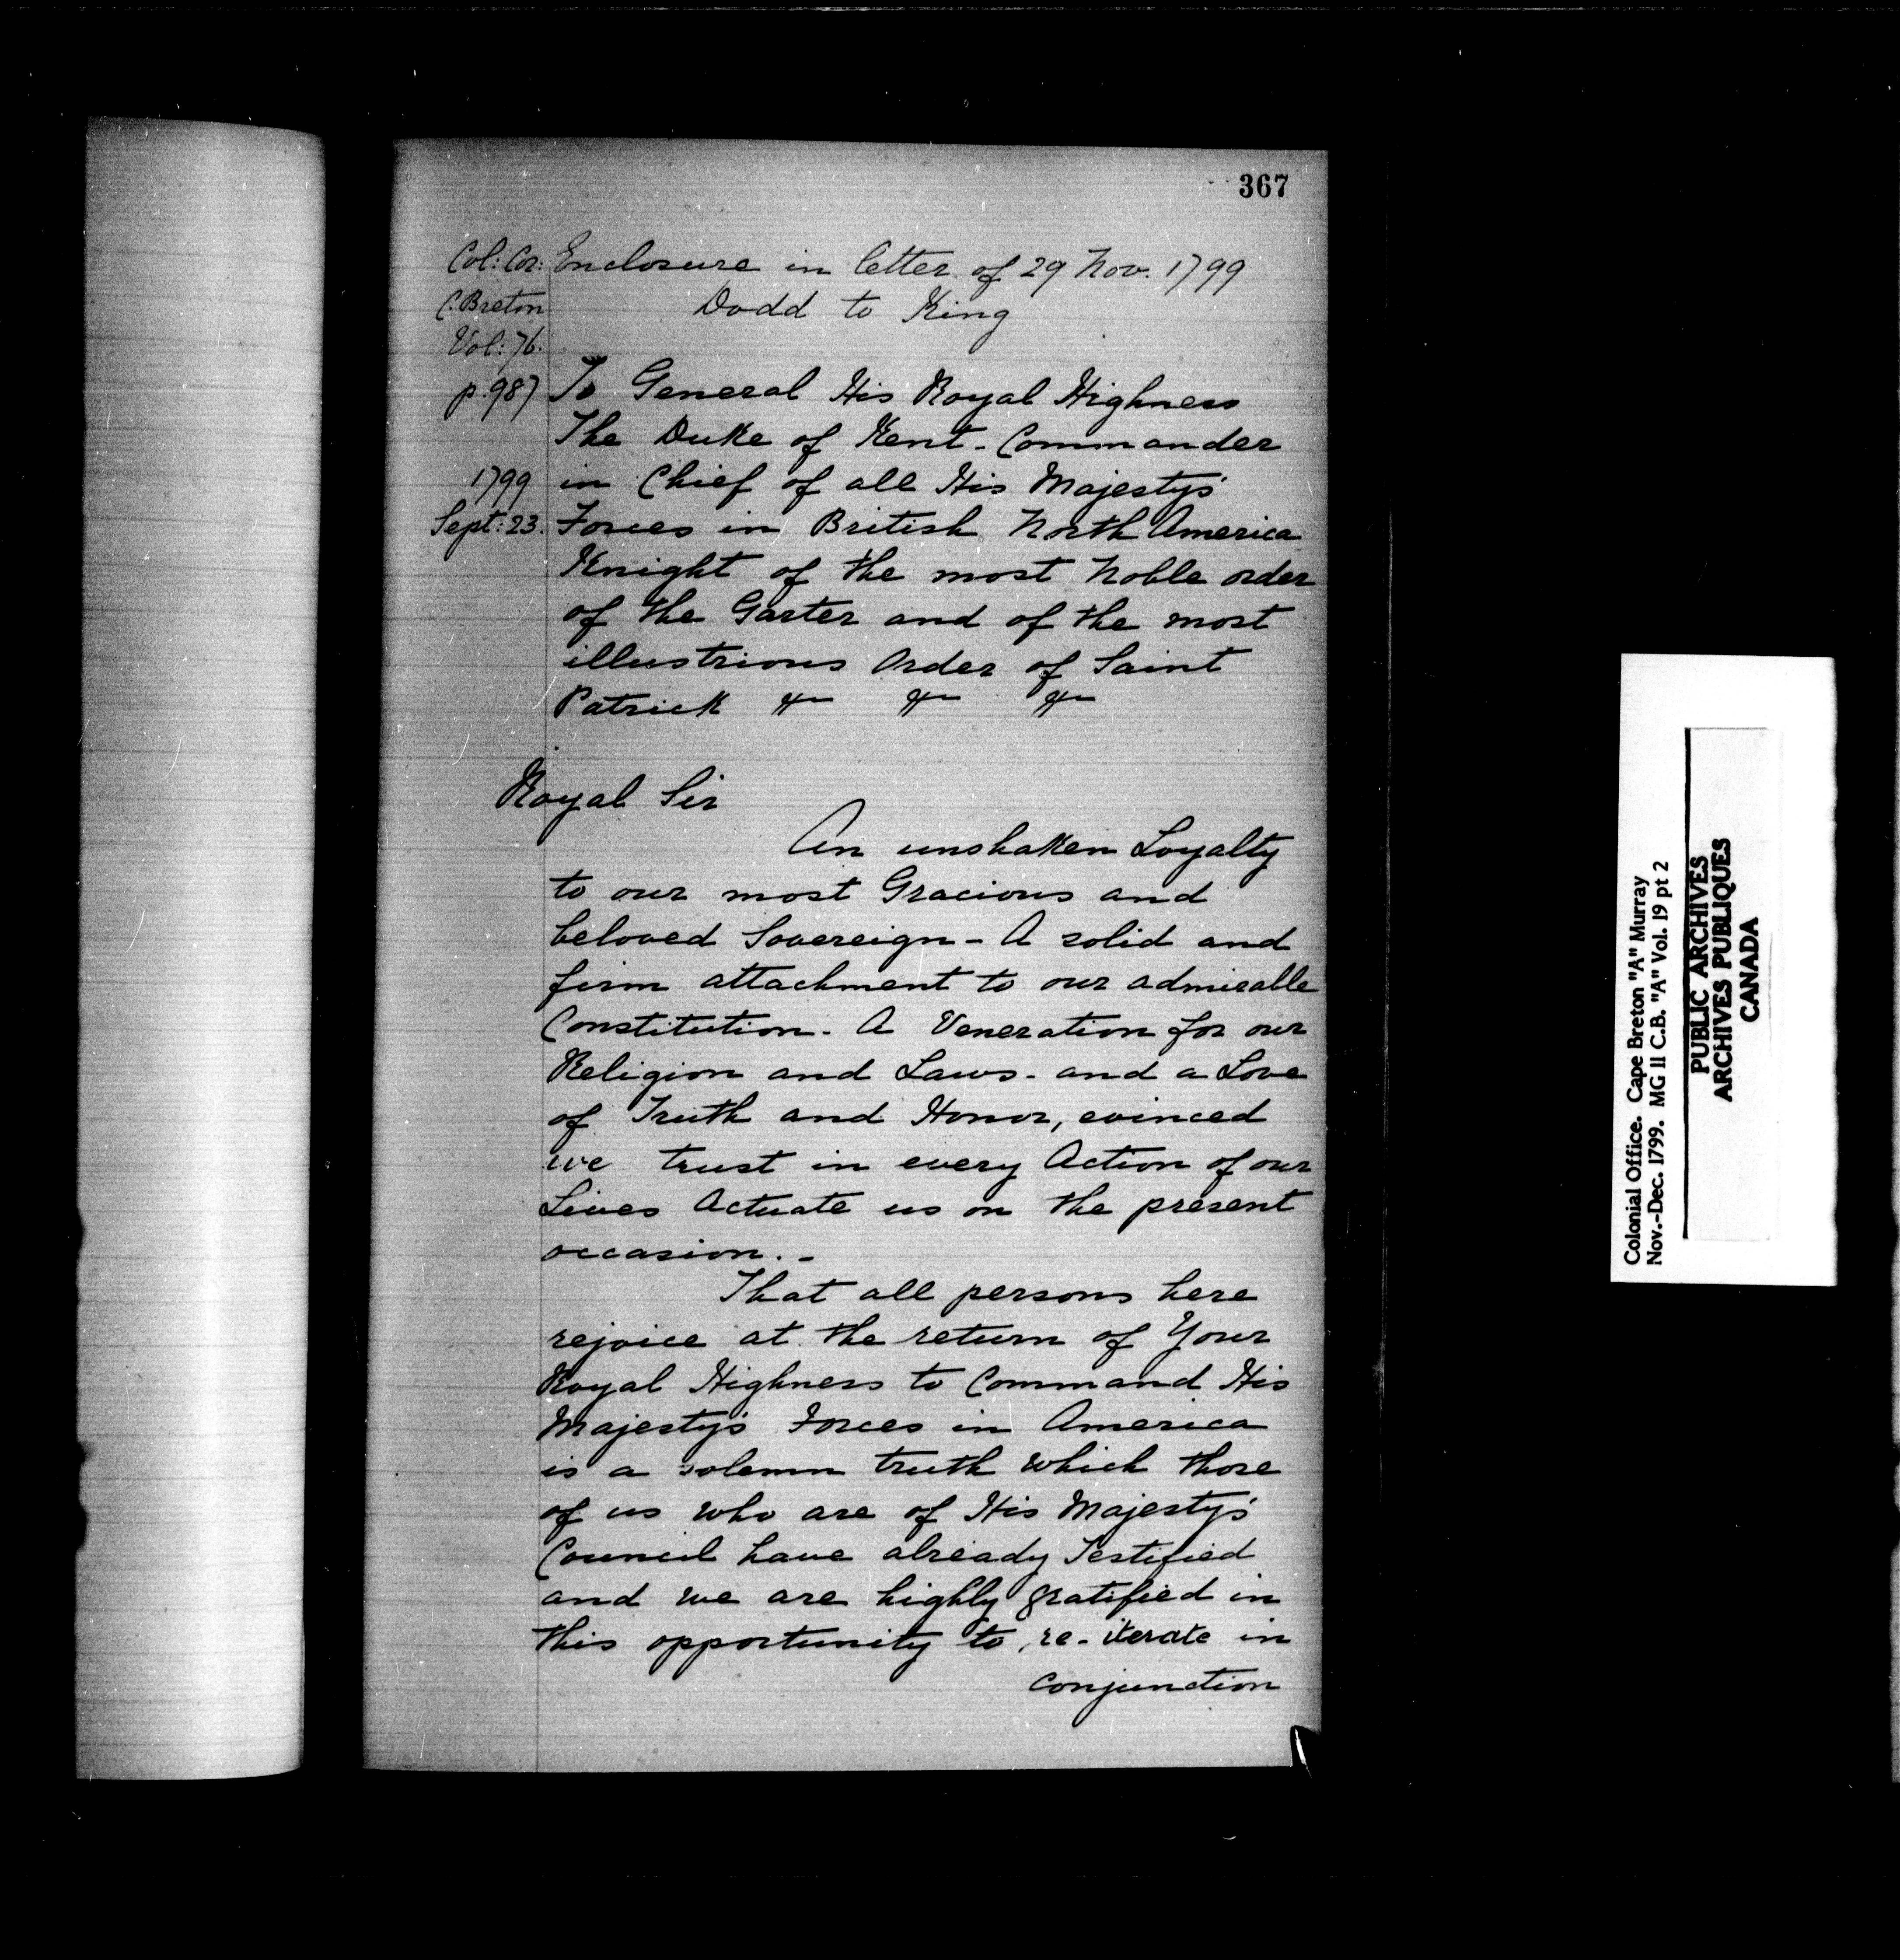 367
Col: Cor: Enclosure in letter of 29 Nov. 1799
C. Breton Dodd to King
Vol: 76.
p. 987 To General His Royal Highness
The Duke of Kent - Commander
1799 in Chief of all His Majesty's
Sept: 23. Forces in British North America
Knight of the most Noble order
of the Garter and of the most
illustrious Order of Saint
Patrick &c &c &c
Royal Sir
An unshaken Loyalty
to our most Gracious and
beloved Sovereign - A solid and
firm attachment to our admirable
Constitution - A Veneration for our
Religion and Laws - and a Love
of Truth and Honor, evinced
we trust in every Action of our
Lives Actuate us on the present
occasion. -
That all persons here
rejoice at the return of Your
Royal Highness to Command His
Majesty's Forces in America
is a solemn truth which those
of us who are of His Majesty's
Council have already Testified
and we are highly gratified in
this opportunity to re-iterate in
conjunction
Colonial Office. Cape Breton "A" Murray
Nov.-Dec. 1799. MG 11 C.B. "A" Vol. 19 pt 2
PUBLIC ARCHIVES
ARCHIVES PUBLIQUES
CANADA